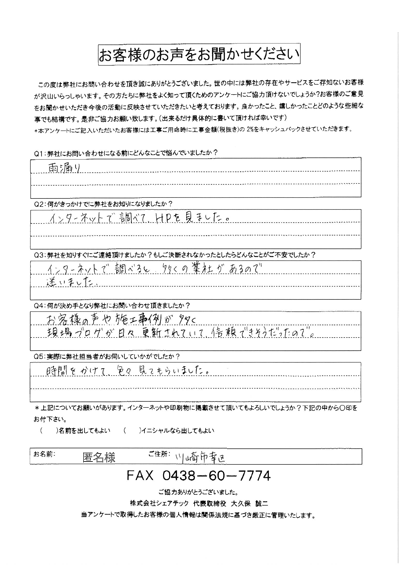 お客様のお声をお聞かせください
この度は弊社にお問い合わせを頂き誠にありがとうございました。世の中には弊社の存在やサービスをご存知ないお客様
が沢山いらっしゃいます。その方たちに弊社をよく知って頂くためのアンケートにご協力頂けないでしょうか?お客様のご意見
をお聞かせいただき今後の活動に反映させていただきたいと考えております。良かったこと、嬉しかったことどのような些細な
事でも結構です。是非ご協力お願い致します。（出来るだけ具体的に書いて頂ければ幸いです）
*本アンケートにご記入いただいたお客様には工事ご用命時に工事金額(税抜き)の 2%をキャッシュバックさせていただきます。
Q1:弊社にお問い合わせになる前にどんなことで悩んでいましたか?
雨漏り
Q2:何がきっかけでに弊社をお知りになりましたか?
インターネットで調べて、HPを見ました。
Q3:弊社を知りすぐにご連絡頂けましたか?もしご決断されなかったとしたらどんなことがご不安でしたか?
インターネットで調べると、多くの業社があるので
迷いました。
Q4:何が決め手となり弊社にお問い合わせ頂きましたか?
お客様の声や施工事例が多く
現場ブログが日々更新されていて、信頼できそうだったので。
Q5:実際に弊社担当者がお伺いしていかがでしたか?
時間をかけて、色々見てもらいました。
*上記についてお願いがあります。インターネットや印刷物に掲載させて頂いてもよろしいでしょうか?下記の中から〇印を
お付下さい。
(　)名前を出してもよい　(　)イニシャルなら出してもよい
お名前: 匿名様 ご住所: 川崎市幸区
FAX 0438-60-7774
ご協力ありがとうございました。
株式会社シェアテック 代表取締役 大久保 誠二
当アンケートで取得したお客様の個人情報は関係法規に基づき厳正に管理いたします。